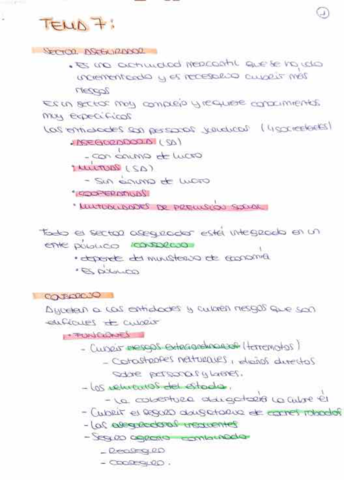 1
TEMA 7:
SECTOR ASEGURADOR
• Es una actividad mercantil que se ha ido
incrementando y es necesario cubrir más
riesgos
Es un sector muy complejo y requiere conocimientos
muy específicos
Las entidades son personas jurídicas (4 sociedades)
• ASEGURADORA (SA)
- con ánimo de lucro
• MUTUAS (SA)
- Sin ánimo de lucro
• COOPERATIVAS
• MUTUALIDADES DE PREVISIÓN SOCIAL
Todo el sector asegurador está integrado en un
ente público CONSORCIO
• depende del ministerio de economía
• Es público
CONSORCIO
Ayudan a las entidades y cubren riesgos que son
difíciles de cubrir
• FUNCIONES
- Cubrir riesgos extraordinarios (terremotos)
- Catástrofes naturales, daños directos
sobre personas y bienes.
- Los vehículos del estado.
- La cobertura obligatoria la cubre él
- Cubrir el seguro obligatorio de coches robados
- Las aseguradoras
- Seguro agrario combinado
- Reaseguro
- Coaseguro.